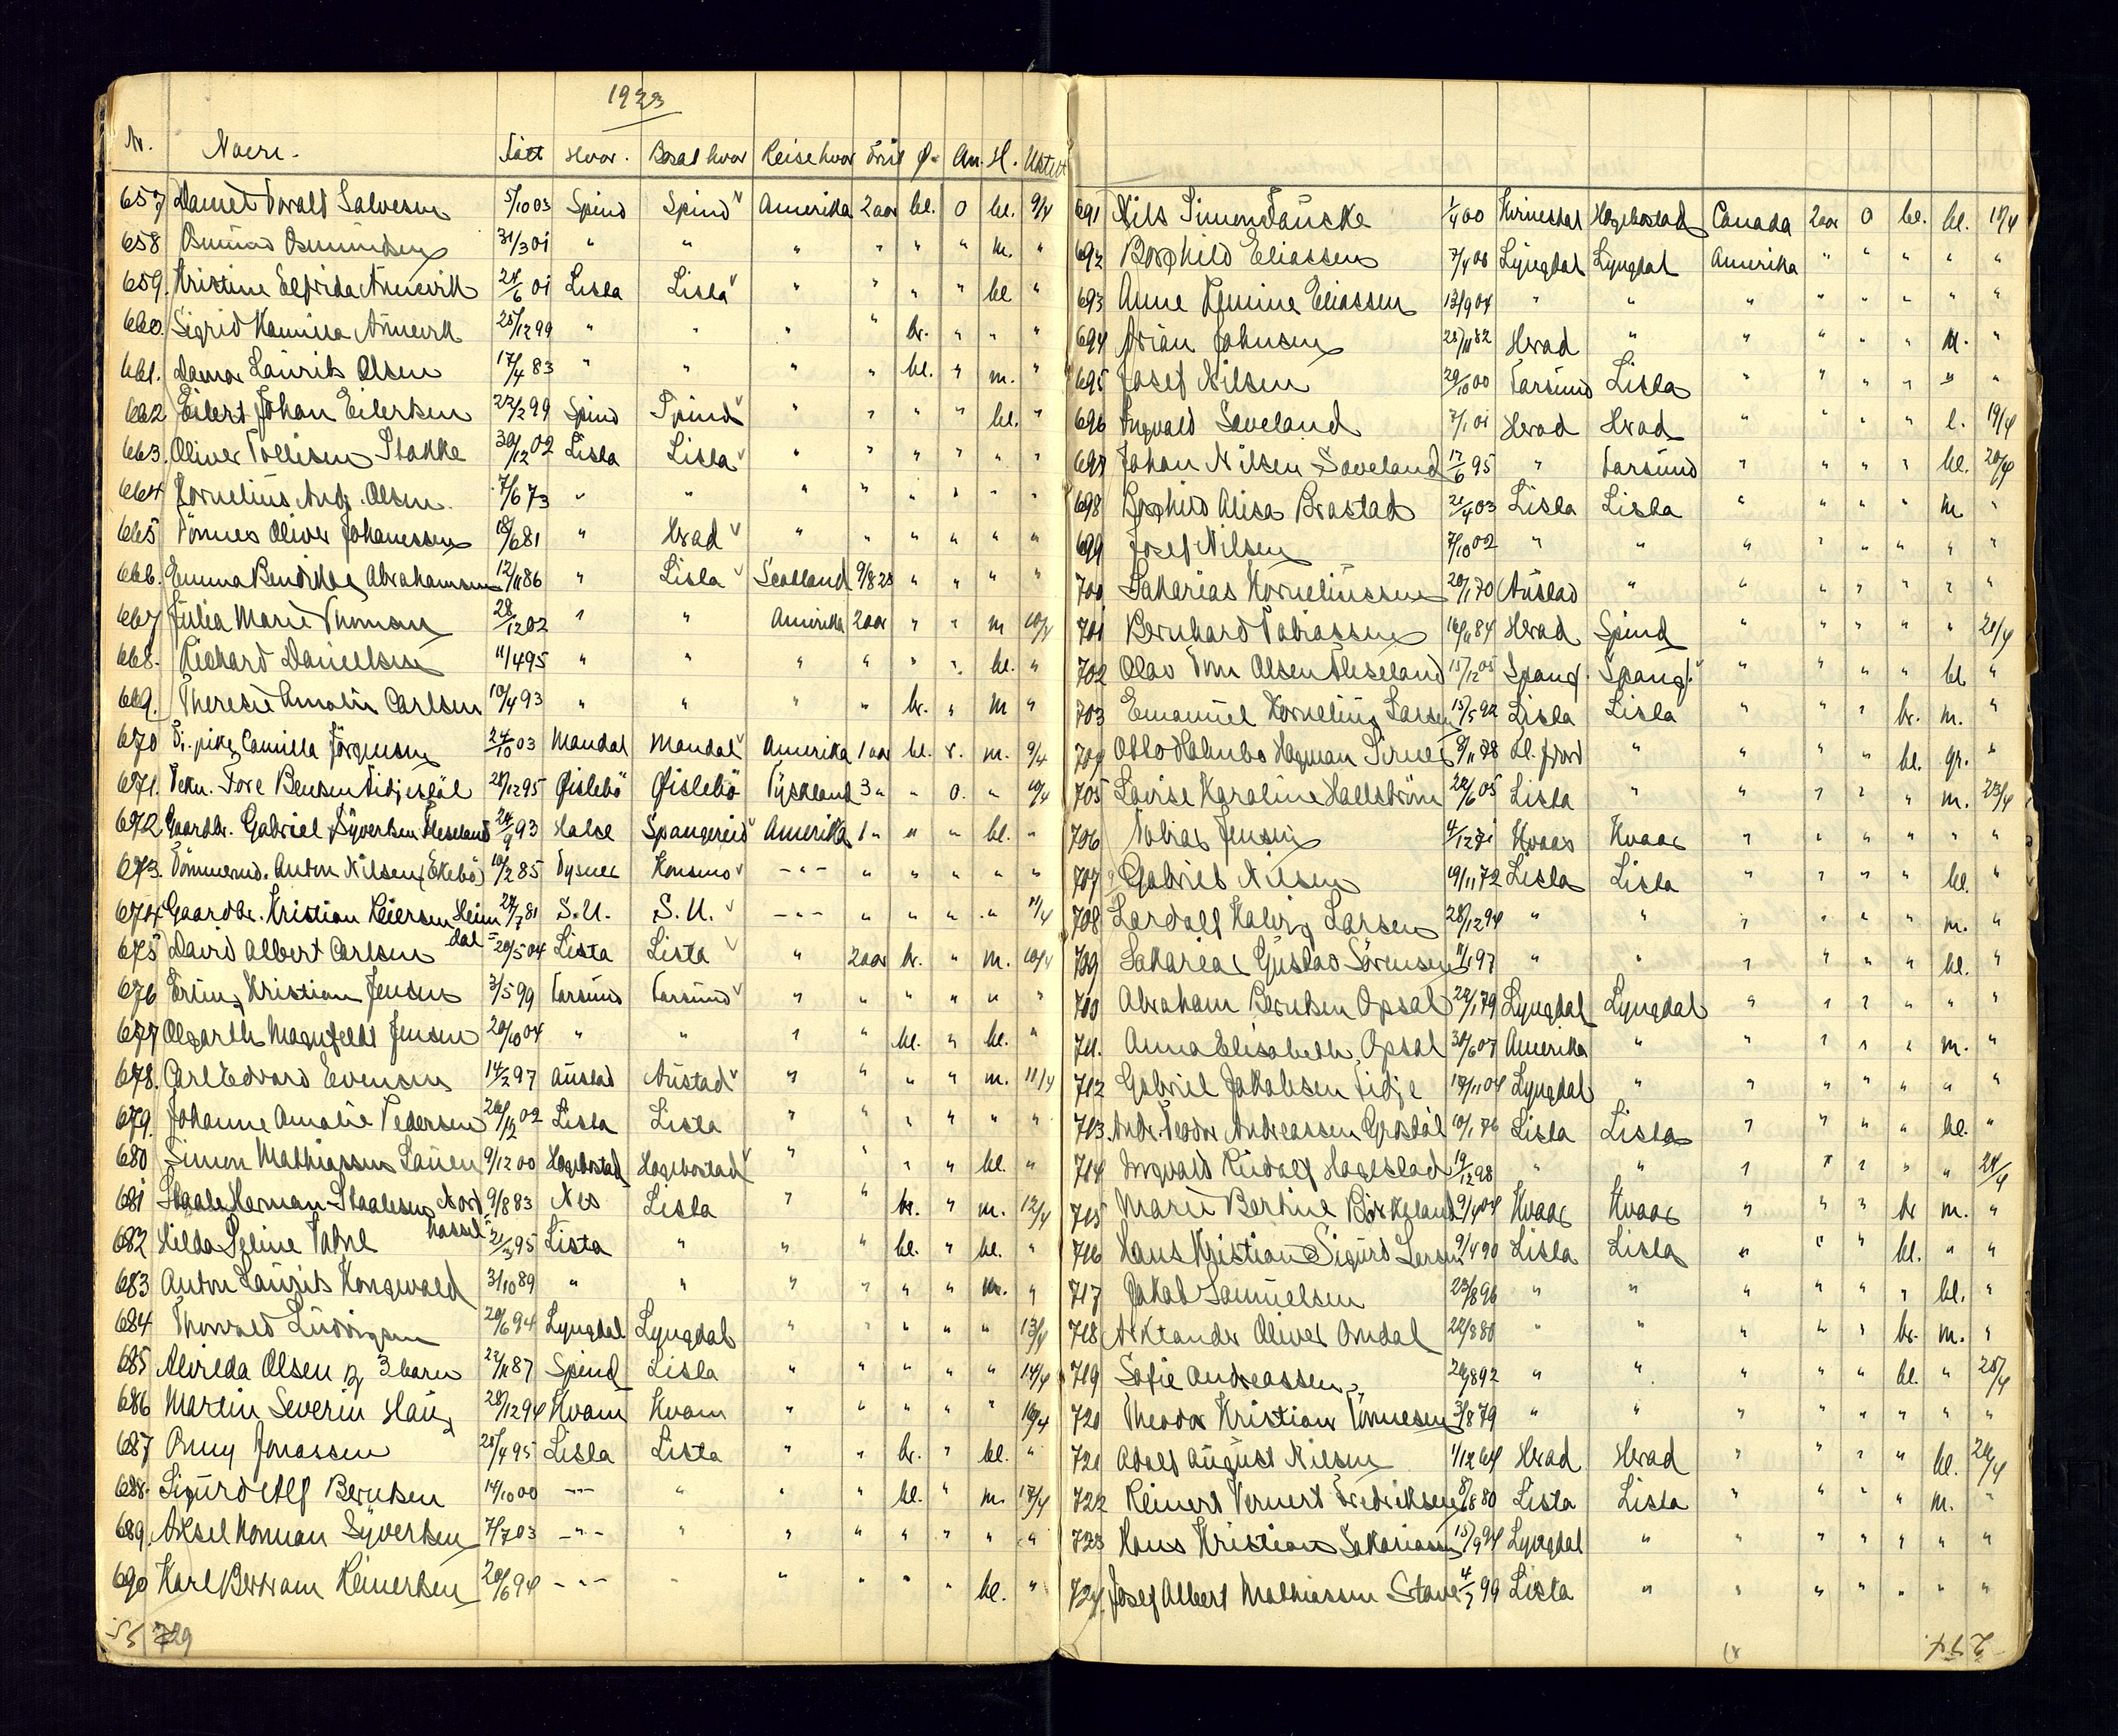 1923
Nr. Navn. Født Hvor. Bosat hvor Reise hvor Ø. An. H. Utstedt
657 Daniel Torall Salvesen 5/10 03 Spind Spind Amerika 2 aar bl. O bl. 9/4
658 Osmund Osmundsen 31/3 01 " " " " " " m. "
659. Kristine Elfrida Annevik 24/6 01 Lista Lista " " " " bl "
660. Sigrid Kamilla Annevik 25/12 99 " " " " br. " " "
661. Laurits Olsen 17/4 83 " " " " bl. " m. "
662 Eilert Johan Eilertsen 22/2 99 Spind Spind " " " " bl. "
663. Oliver Tollisen Stakke 30/12 02 Lista Lista " " " " " "
664 Kornelius Andr. Olsen 7/6 73 " " " " " " " "
665 Tønnes Oliver Johanessen 18/6 81 " Herad " " " " " "
666. Emma Bendikte Abrahamsen 12/11 86 " Lista Scotland 9/8 23 " " " "
667 Julia Marie Thomsen 28/12 02 " " Amerika 2 aar " " m 10/4
668. Richard Danielsen 11/4 95 " " " " " " bl. "
669. Therese Amalie Carlsen 10/4 93 " " " " br. " m "
670 Tj. pike Camilla Jørgensen 24/10 03 Mandal Mandal Amerika 1 aar bl. r. m. 9/4
671. Tore Bentsen 28/12 95 Øislebö Øislebö Tyskland 3 " " O. " 10/4
672 Gaardbr. Gabriel Syvertsen Fleseland 24/9 93 Halse Spangereid Amerika 1 " " " bl. "
673. Tømmermd. Anton Nilsen (Ekebö) 10/2 85 Vysnec Konsmo -"- " " " " "
674 Gaardbr. Kristian Reiersen Heim 24/7 81 S.U. S.U. -"- " " " " 11/4
dal =
675 David Albert Carlsen 20/5 04 Lista Lista " 2 aar br. " m. 10/4
676 Erling Kristian Jensen 3/5 99 Farsund Farsund " " " " " "
677 Olgarth Magnfeldt Jensen 20/10 04 " " " " bl. " bl. "
678. Carl Edvard Evensen 14/2 97 Austad Austad " " " " m. 11/4
679. Johanne Amalie Pedersen 26/12 02 Lista Lista " " " " " "
680 Simon Mathiassen Lauen 9/12 00 Hægebostad Hægebostad " " " " bl. "
681 Staale Herman Staalesen Nord 9/8 83 Nes Lista " " br. " m. 12/4
hassel =
682 Hilda Seline Vatne 21/3 95 Lista " " " bl. " bl. "
683 Anton Laurits Kongevold 3/10 89 " " " " " " m. "
684 Thorvald Ludvigsen 20/6 94 Lyngdal Lyngdal " " " " " 13/4
685 Alvilda Olsen og 3 barn 22/11 87 Spind Lista " " " " " 14/4
686 Martin Severin Haug 28/12 94 Kvam Kvam " " " " " 16/4
687 Anny Jonassen 28/4 95 Lista Lista " " br. " bl. "
688. Sigurd Alf Berntsen 14/10 00 -"- " " " bl. " m. 17/4
689. Aksel Norman Syvertsen 7/7 03 -"- " " " " " " "
690 Karl Bertram Reinertsen 20/6 94 -"- " " " " " bl. "
729
691 Nils Simon Fauske 1/4 00 Kvinesdal Hægebostad Canada 2 aar O bl. bl. 18/4
692 Borghild Eliassen 7/4 00 Lyngdal Lyngdal Amerika " " " " "
693 Anne Eliassen 13/9 04 " " " " " " " "
694 Arian Johnsen 25/11 82 Herad " " " " " m. "
695 Josef Nilsen 29/10 00 Farsund Lista " " " " " "
696 Ingvald Saveland 7/1 01 Herad Herad " " " " l. 19/4
697 Johan Nilsen Saveland 17/6 95 " Farsund " " " " bl. 20/4
698 Borghild Alisa Brastad 21/4 03 Lista Lista " " " " m "
699 Josef Nilsen 7/10 02 " " " " " " " "
700 Sakarias Korneliussen 20/1 70 Austad " " " " " " "
701 Bernhard Tobiassen 16/11 84 Herad Spind " " " " " 21/4
702 Olav Tom Olsen Fleseland 15/12 05 Spang. Spang. " " " " bl "
703 Emanuel Kornelius Larsen 15/5 92 Lista Lista " " " br. m. "
704 Otto Hagman Sirnes 9/11 78 " " " " bl. gr. "
705 Lovise Karoline Hallström 22/6 05 Lista " " " " " m. 23/4
706 Tobias Jensen 4/12 71 Kvaas Kvaas " " " " " "
707 Gabriel Nilsen 19/11 72 Lista Lista " " " " bl. "
708 Lardolf Larsen 28/12 94 " " " " " " m. "
709 Sakarias Gustav Sørensen 11/1 97 " " " " " " bl. "
700 Abraham Berntsen Opsal 22/1 79 Lyngdal Lyngdal " " " " " "
711. Anna Elisabeth Opsal 30/6 07 Amerika " " " " " m. "
712 Gabriel Jakobsen 18/11 04 Lyngdal " " " " " " "
713. Andr. Teodor Andreassen Grostöl 10/1 76 Lista Lista " " " " bl. "
714 Ingvald Rudolf Hagestad 19/12 98 " " " " " " " 24/4
715 Marie Bertine Birkeland 9/4 04 Kvaas Kvaas " " " br m. "
716 Hans Kristian Sigurd Larsen 9/4 90 Lista Lista " " " bl. " "
717 Jakob Samuelsen 23/8 96 " " " " " " bl. "
718 Arktander Oliver Omdal 22/3 80 " " " " " br. m. "
719 Sofie Andreassen 26/8 92 " " " " " bl. " 25/4
720 Theodor Kristian Tønnesen 3/8 79 " " " " " " " "
721 Adolf August Nilsen 1/12 64 Herad Herad " " " " bl. 26/4
722 Reinert Vernert Fredriksen 8/8 80 Lista Lista " " " " m. "
723 Hans Kristian Sakariassen 15/9 94 Lyngdal " " " " " " "
724. Josef Albert Mathiassen Stave 4/7 99 Lista " " " " " " "